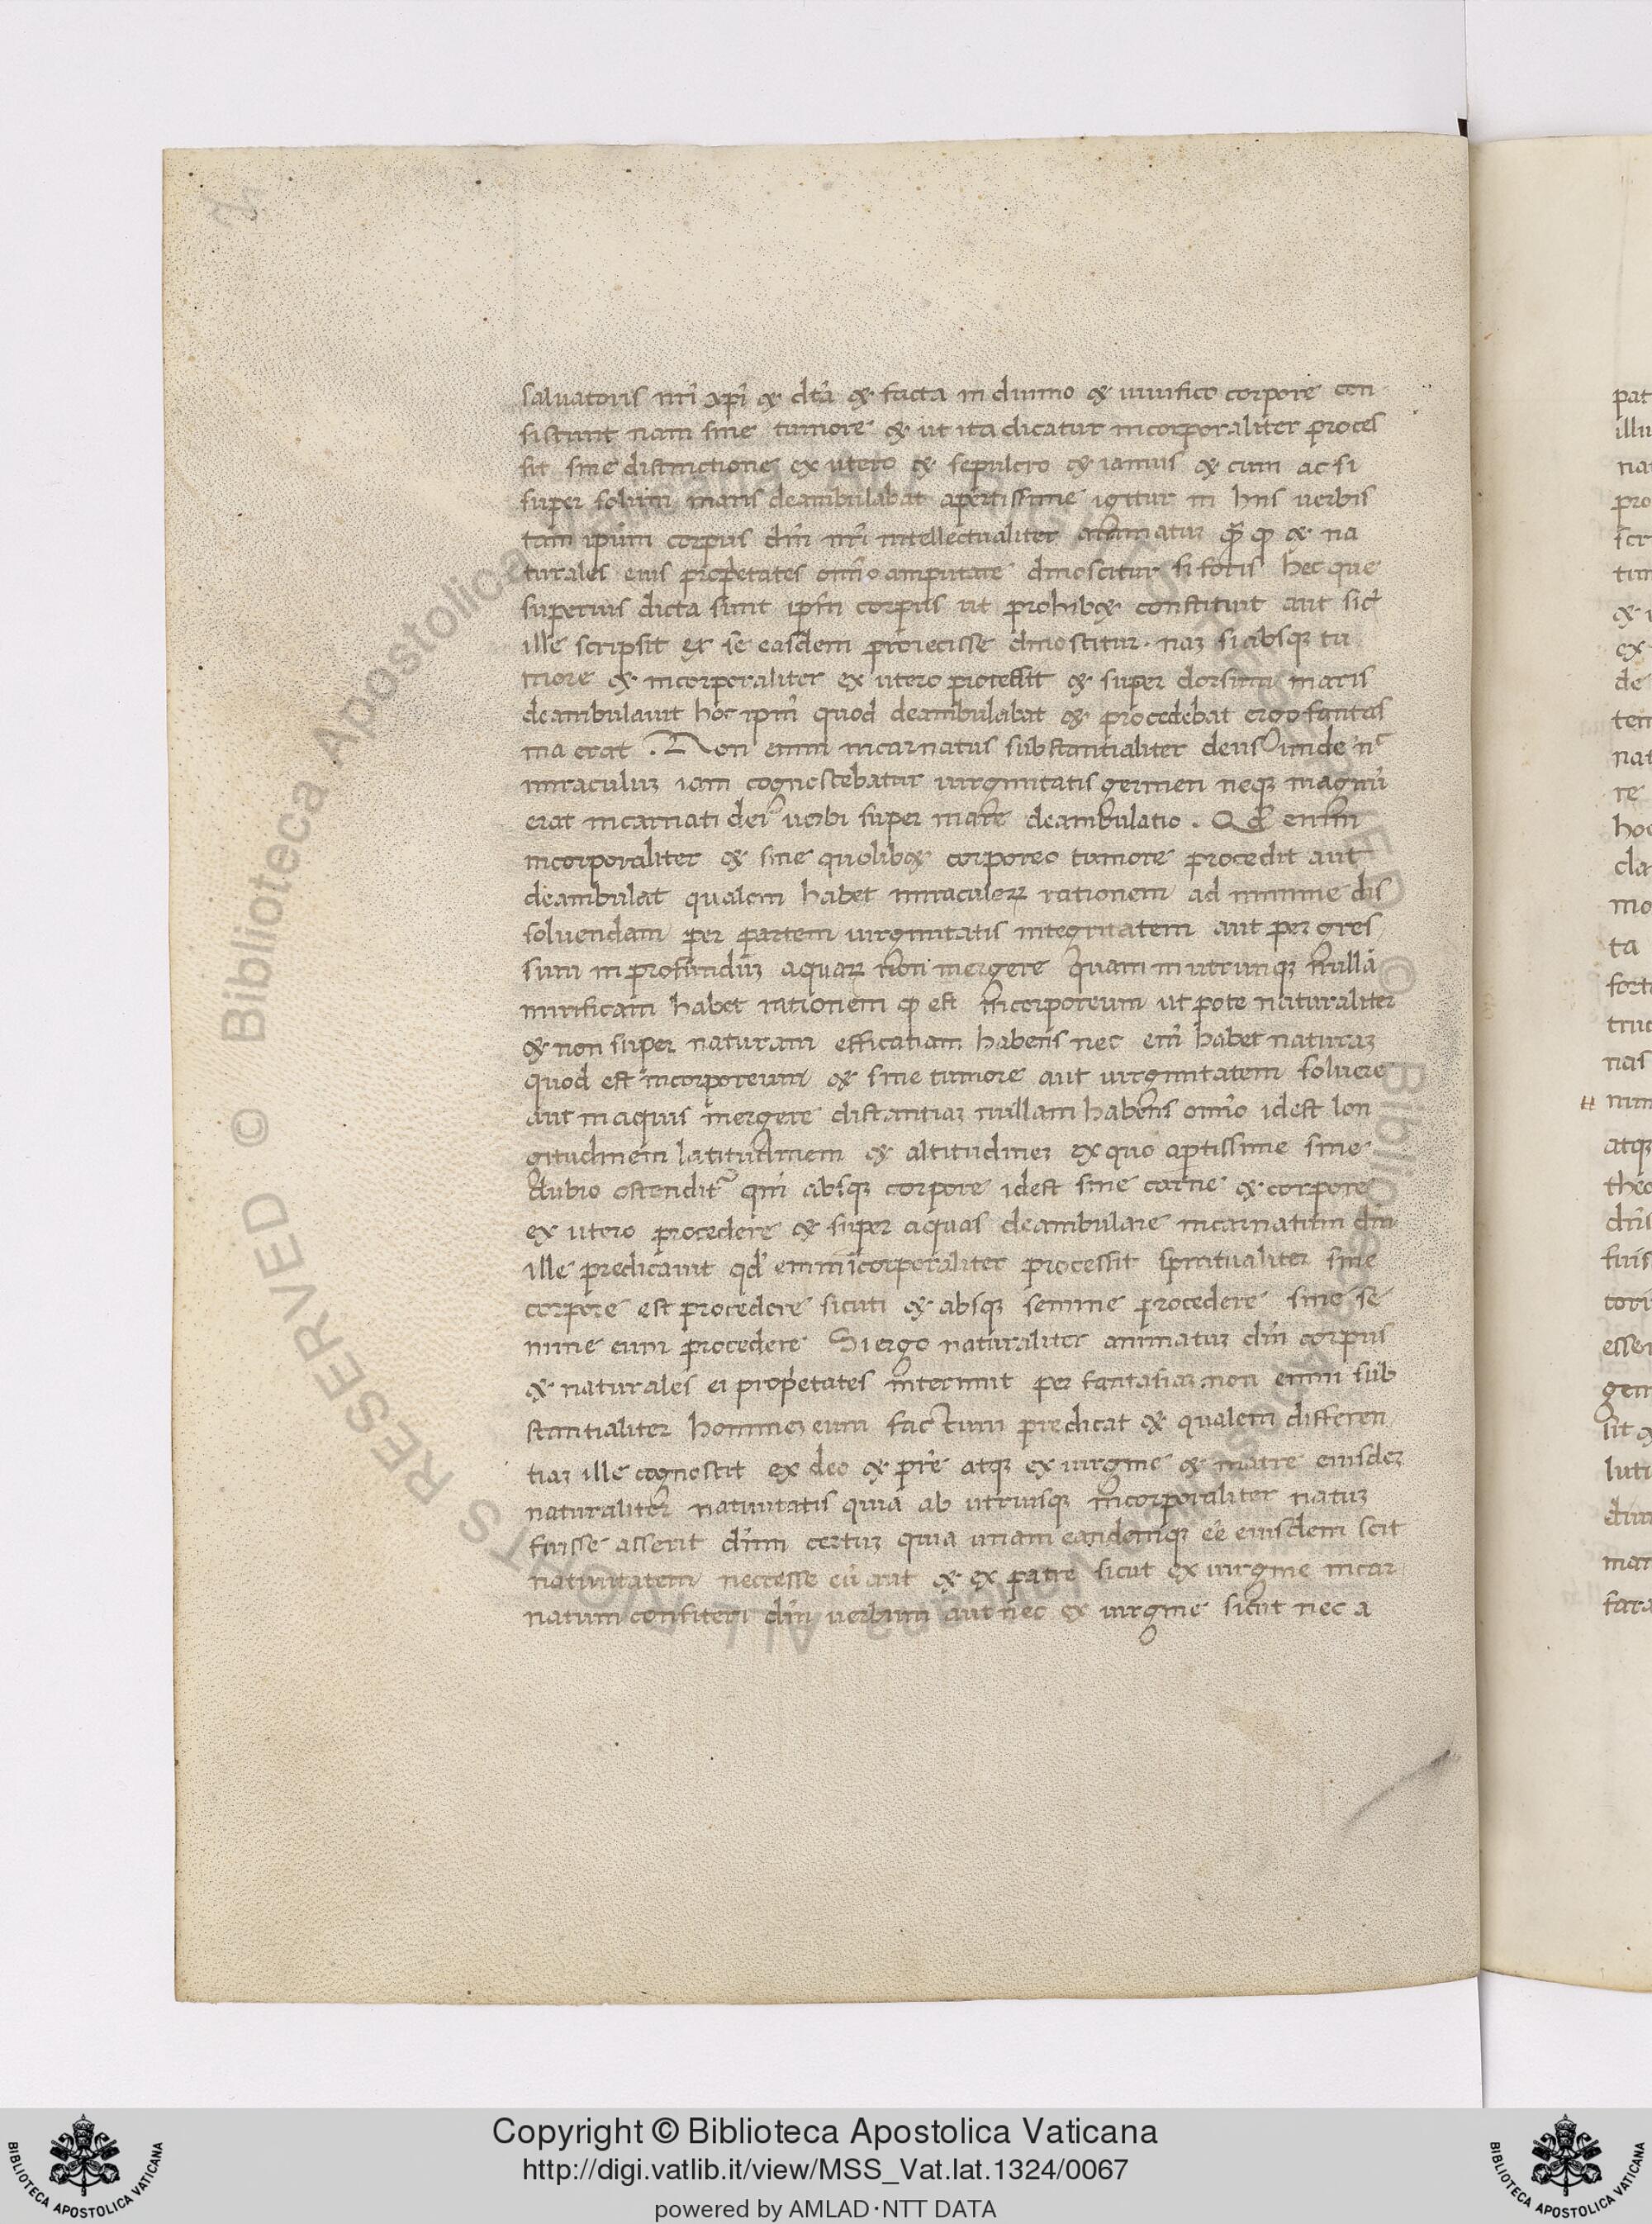 saluatoris nr̄i xp̄i & dc̄a & facta in diuino & uiuifico corpore con
sistunt nam sine tumore & ut ita dicatur incorporaliter proces
sit sine distinctione ex utero & sepulcro & ianuis & cum ac si
super solum maris deambulabat apertissime igitur in hiis uerbis
tam ip̄um corpus dn̄i nr̄i intellectualiter & na
turales eius prop̄etates om̄io amputare dinoscitur si foris hec que
superius dicta sunt ip̄m corpus ut prohib& constituit aut sic̄
ille scripsit et se easdem proiecisse dinoscitur. naz si absq; tu
more & incorporaliter ex utero processit & super dorsum maris
deambulauit hoc ip̄m quod deambulabat & procedebat ergo fantas
ma erat. Non enim incarnatus substantialiter deus unde nc̄
miraculuz iam cognoscebatur uirginitatis germen neq; magnū
erat incarnati dei uerbi super mare deambulatio. Qd̄ enim
incorporaliter & sine quolib& corporeo tumore procedit aut
deambulat qualem habet miraculoꝝ rationem ad minime dis
soluendam per partem uirginitatis integritatem aut per gres
sum in profunduz aquaꝝ non mergere quam in utrunq; nullā
mirificam habet rationem ꝙ est incorporeum ut pote naturaliter
& non super naturam efficatiam habens nec em̄ habet naturaz
quod est incorporeum & sine tumore aut uirginitatem soluere
aut in aquis mergere distantiaz nullam habens om̄io idest lon
gitudinem latitudinem & altitudinez ex quo aptissime sine
dubio ostendit̄ qm̄ absq; corpore idest sine carne & corpore
ex utero procedere & super aquas deambulare incarnatum dm̄
ille predicauit qd̄ enim īcorporaliter processit spiritualiter sine
corpore est procedere sicuti & absq; semine procedere sine se
mine eum procedere Si ergo naturaliter animatuz dn̄i corpus
& naturales ei prop̄etates interimit per fantasiaz non enim sub
stantialiter hominez eum factum predicat & qualem differen
tiaz ille cognoscit ex deo & pr̄e atq; ex uirgine & matre eiusdez
naturaliter natiuitatis quia ab utrisq; incorporaliter natuz
fuisse asserit dn̄m certuz quia unam eandemq; eē eiusdem scit
natiuitatem neccesse eū aut & ex patre sicut ex uirgine incar
natum confiteri dm̄ uerbum aut nec ex uirgine sicut nec a
Copyright © Biblioteca Apostolica Vaticana
http://digi.vatlib.it/view/MSS_Vat.lat.1324/0067
powered by AMLAD·NTT DATA